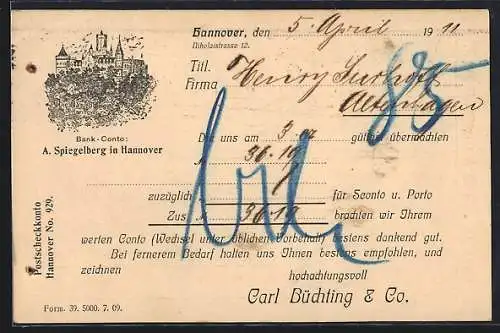 Hannover, den 5. April 1911
Nikolaistrasse 12.
Titl.
Firma Henry
Altenhagen
85
Bank-Conto:
A. Spiegelberg in Hannover
Die uns am 3. gütigst übermachten
M 36.19
zuzüglich für Sconto u. Porto
Zus. M 36.19 brachten wir Ihrem
werten Conto (Wechsel unter üblichem Vorbehalt) bestens dankend gut.
Bei fernerem Bedarf halten uns Ihnen bestens empfohlen, und
zeichnen hochachtungsvoll
Carl Büchting & Co.
Postscheckkonto
Hannover No. 929.
Form. 39. 5000. 7. 09.